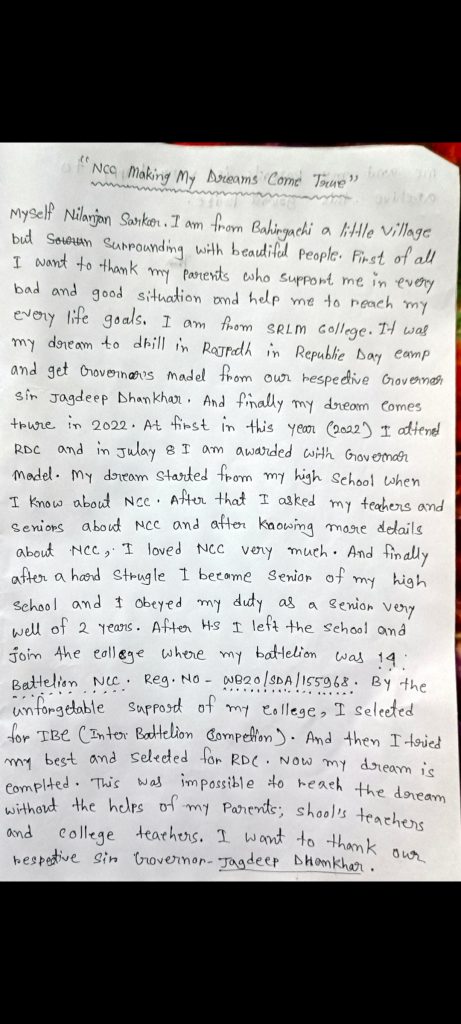 "NCC Making My Dreams Come Treue"
Myself Nilanjan Sarkar. I am from Bahirgachi a little village
but Surrounding with beautiful people. First of all
I want to thank my parents who support me in every
bad and good situation and help me to reach my
every life goals. I am from SRLM College. It was
my dream to drill in Rajpath in Republic Day camp
and get Governor's madel from our respective Governor
sir Jagdeep Dhankhar. And finally my dream comes
trure in 2022. At first in this year (2022) I attend
RDC and in Julay 8 I am awarded with Governor
Model. My dream started from my high School when
I know about NCC. After that I asked my teahers and
seniors about NCC and after knowing more details
about NCC, I loved NCC very much. And finally
after a hard strugle I become senior of my high
school and I obeyed my duty as a senior very
well of 2 years. After HS I left the school and
join the college where my battelion was 14
Battelion NCC. Reg. No - WB20/SDA/155968. By the
unforgetable support of my college, I selected
for IBC (Inter Battelion Compettion). And then I tried
my best and selected for RDC. Now my dream is
complted. This was impossible to reach the dream
without the helps of my Parents; shool's teachers
and college teachers. I want to thank our
respective Sir Governor- Jagdeep Dhankhar.